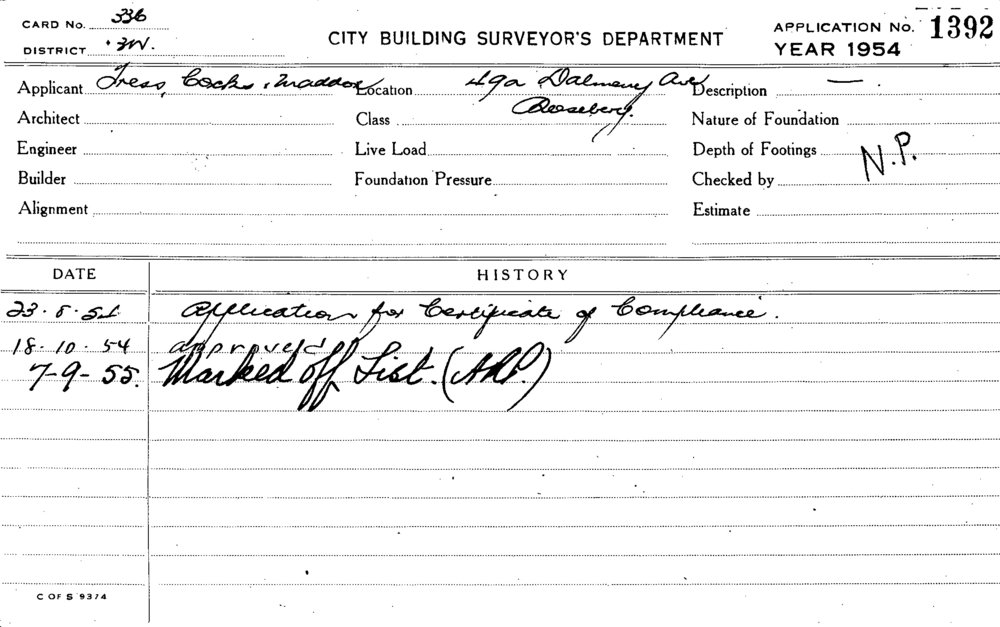 CARD No. 336
DISTRICT
CITY BUILDING SURVEYOR'S DEPARTMENT
APPLICATION No. 1392
YEAR 1954
Applicant Tress, Cocks, Maddox Location 49a Dalmeny Ave Description —
Roseberg.
Architect Class Nature of Foundation
Engineer Live Load Depth of Footings N.P.
Builder Foundation Pressure Checked by
Alignment Estimate
DATE HISTORY
Application for Certificate of Compliance.
18-10-54 approved
7-9-55. Marked off List.
C OF S 9374